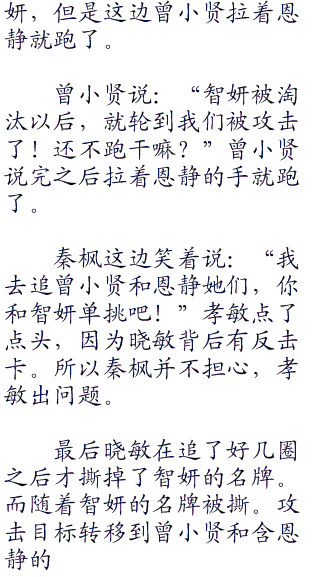 妍，但是这边曾小贤拉着恩
静就跑了。
曾小贤说：“智妍被淘
汰以后，就轮到我们被攻击
了！还不跑干嘛？”曾小贤
说完之后拉着恩静的手就跑
了。
秦枫这边笑着说：“我
去追曾小贤和恩静她们，你
和智妍单挑吧！”孝敏点了
点头，因为晓敏背后有反击
卡。所以秦枫并不担心，孝
敏出问题。
最后晓敏在追了好几圈
之后才撕掉了智妍的名牌。
而随着智妍的名牌被撕。攻
击目标转移到曾小贤和含恩
静的